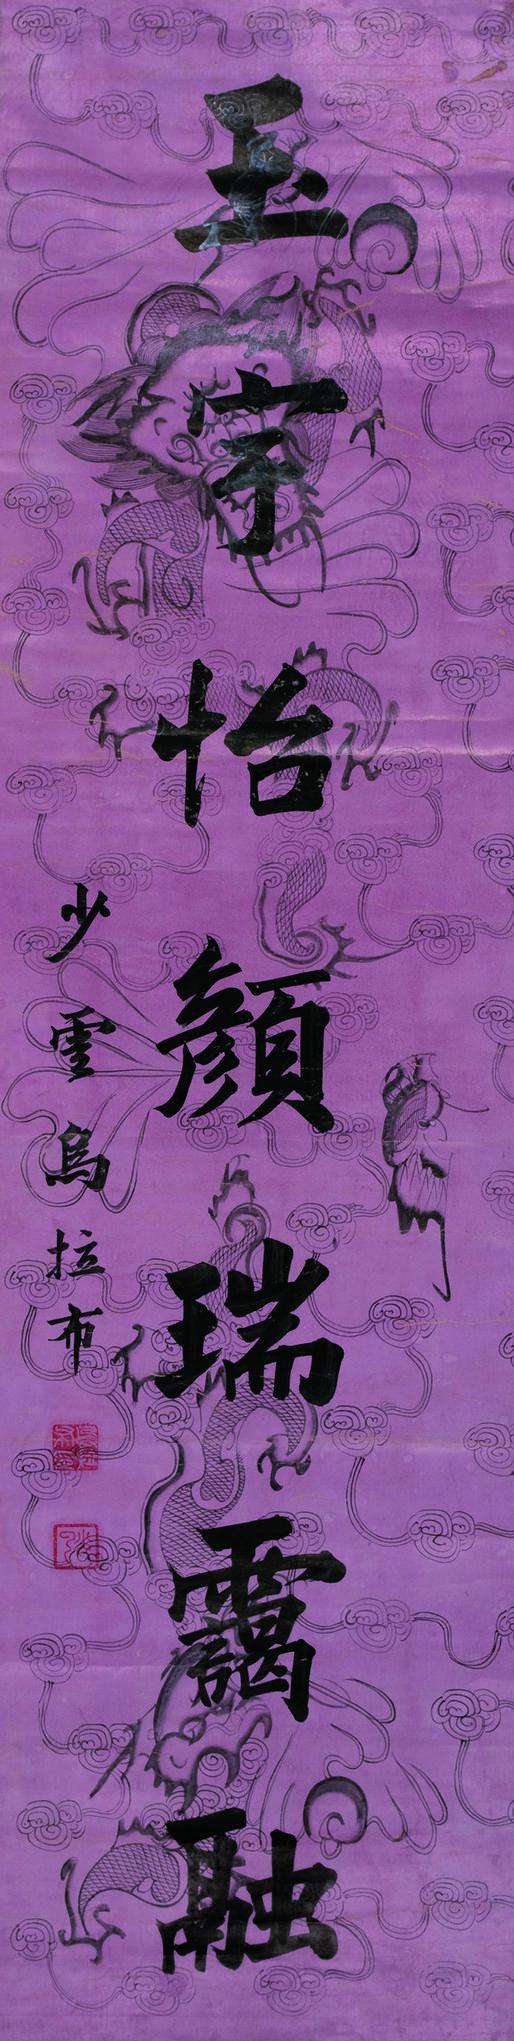 玉宇怡顏瑞靄融
少雲烏拉布